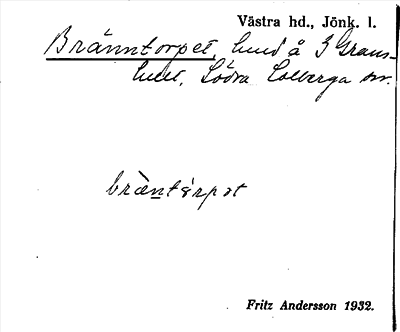 Västra hd., Jönk. l.
Bränntorpet, hund å 3 Grans-
hult, Södra Solberga sn.
bräntårpət
Fritz Andersson 1932.